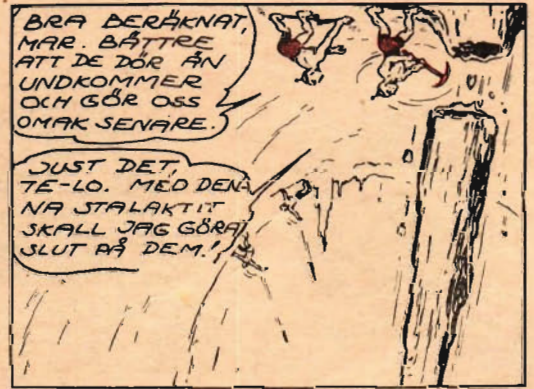 BRA BERÄKNAT,
MAR. BÄTTRE
ATT DE DÖR ÄN
UNDKOMMER
OCH GÖR OSS
OMAK SENARE.
JUST DET,
TE-LO. MED DEN-
NA STALAKTIT
SKALL JAG GÖRA
SLUT PÅ DEM!